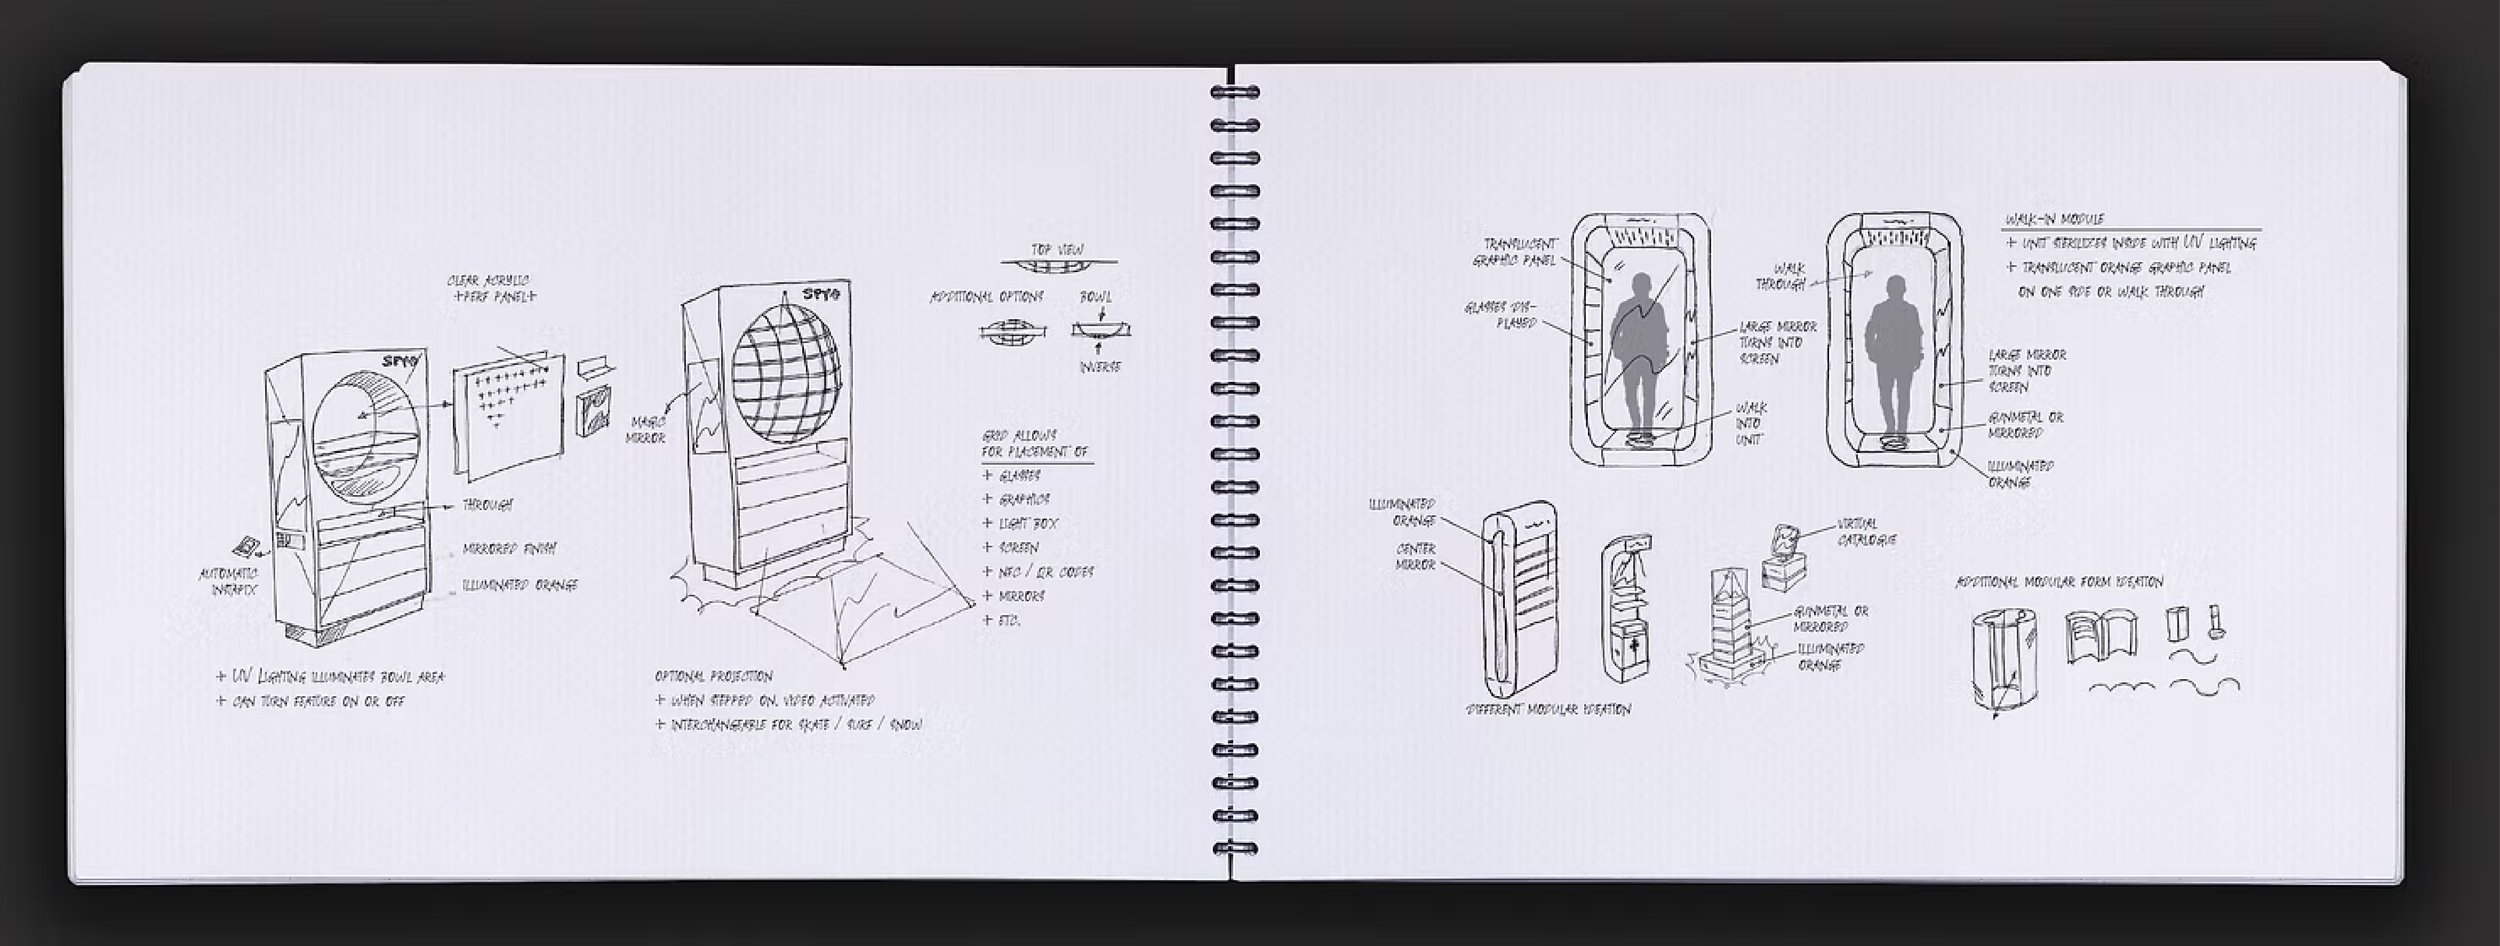 CLEAR ACRYLIC
+PERF PANEL+
SPY+
THROUGH
MIRRORED FINISH
ILLUMINATED ORANGE
AUTOMATIC
INSTAPIX
+ UV LIGHTING ILLUMINATES BOWL AREA
+ CAN TURN FEATURE ON OR OFF
SPY+
MAGIC
MIRROR
OPTIONAL PROJECTION
+ WHEN STEPPED ON, VIDEO ACTIVATED
+ INTERCHANGEABLE FOR SKATE / SURF / SNOW
TOP VIEW
ADDITIONAL OPTIONS
BOWL
INVERSE
GRID ALLOWS
FOR PLACEMENT OF
+ GLASSES
+ GRAPHICS
+ LIGHT BOX
+ SCREEN
+ NFC / QR CODES
+ MIRRORS
+ ETC.
TRANSLUCENT
GRAPHIC PANEL
GLASSES DIS-
PLAYED
LARGE MIRROR
TURNS INTO
SCREEN
WALK
INTO
UNIT
WALK
THROUGH
WALK-IN MODULE
+ UNIT STERILIZES INSIDE WITH UV LIGHTING
+ TRANSLUCENT ORANGE GRAPHIC PANEL
ON ONE SIDE OR WALK THROUGH
LARGE MIRROR
TURNS INTO
SCREEN
GUNMETAL OR
MIRRORED
ILLUMINATED
ORANGE
ILLUMINATED
ORANGE
CENTER
MIRROR
VIRTUAL
CATALOGUE
GUNMETAL OR
MIRRORED
ILLUMINATED
ORANGE
DIFFERENT MODULAR IDEATION
ADDITIONAL MODULAR FORM IDEATION